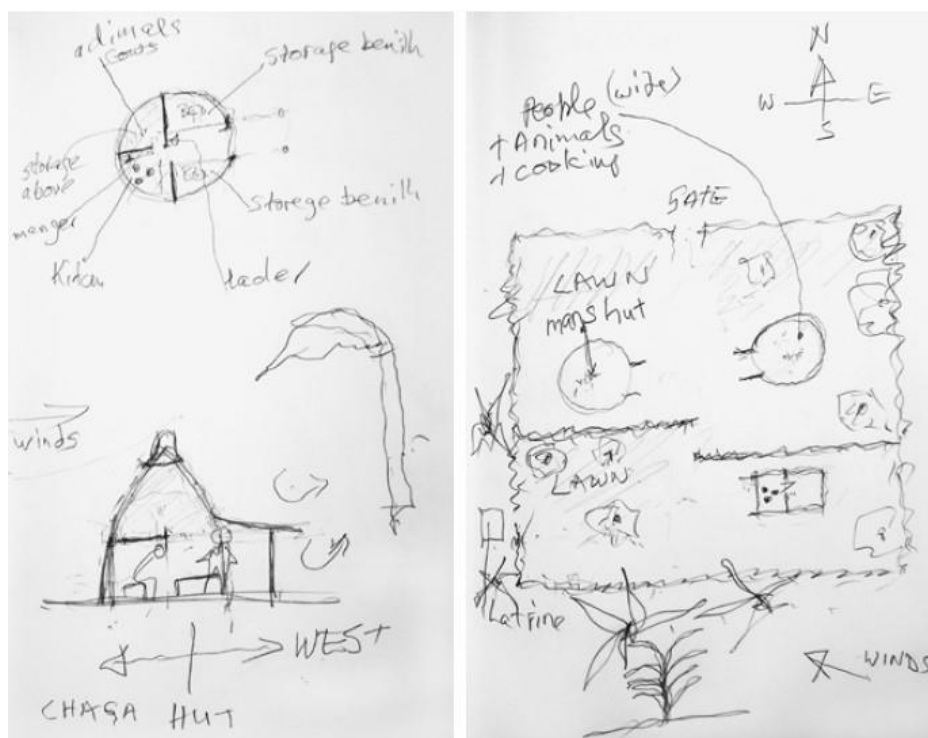 adimals
Cows
storage benith
BED
storage
above
manger
BED
storege benith
Kitcen
lader
winds
WEST
CHAGA HUT
N
W E
S
People (wife)
+ Animals
+ cooking
GATE
LAWN
mans hut
LAWN
Latrine
WINDS